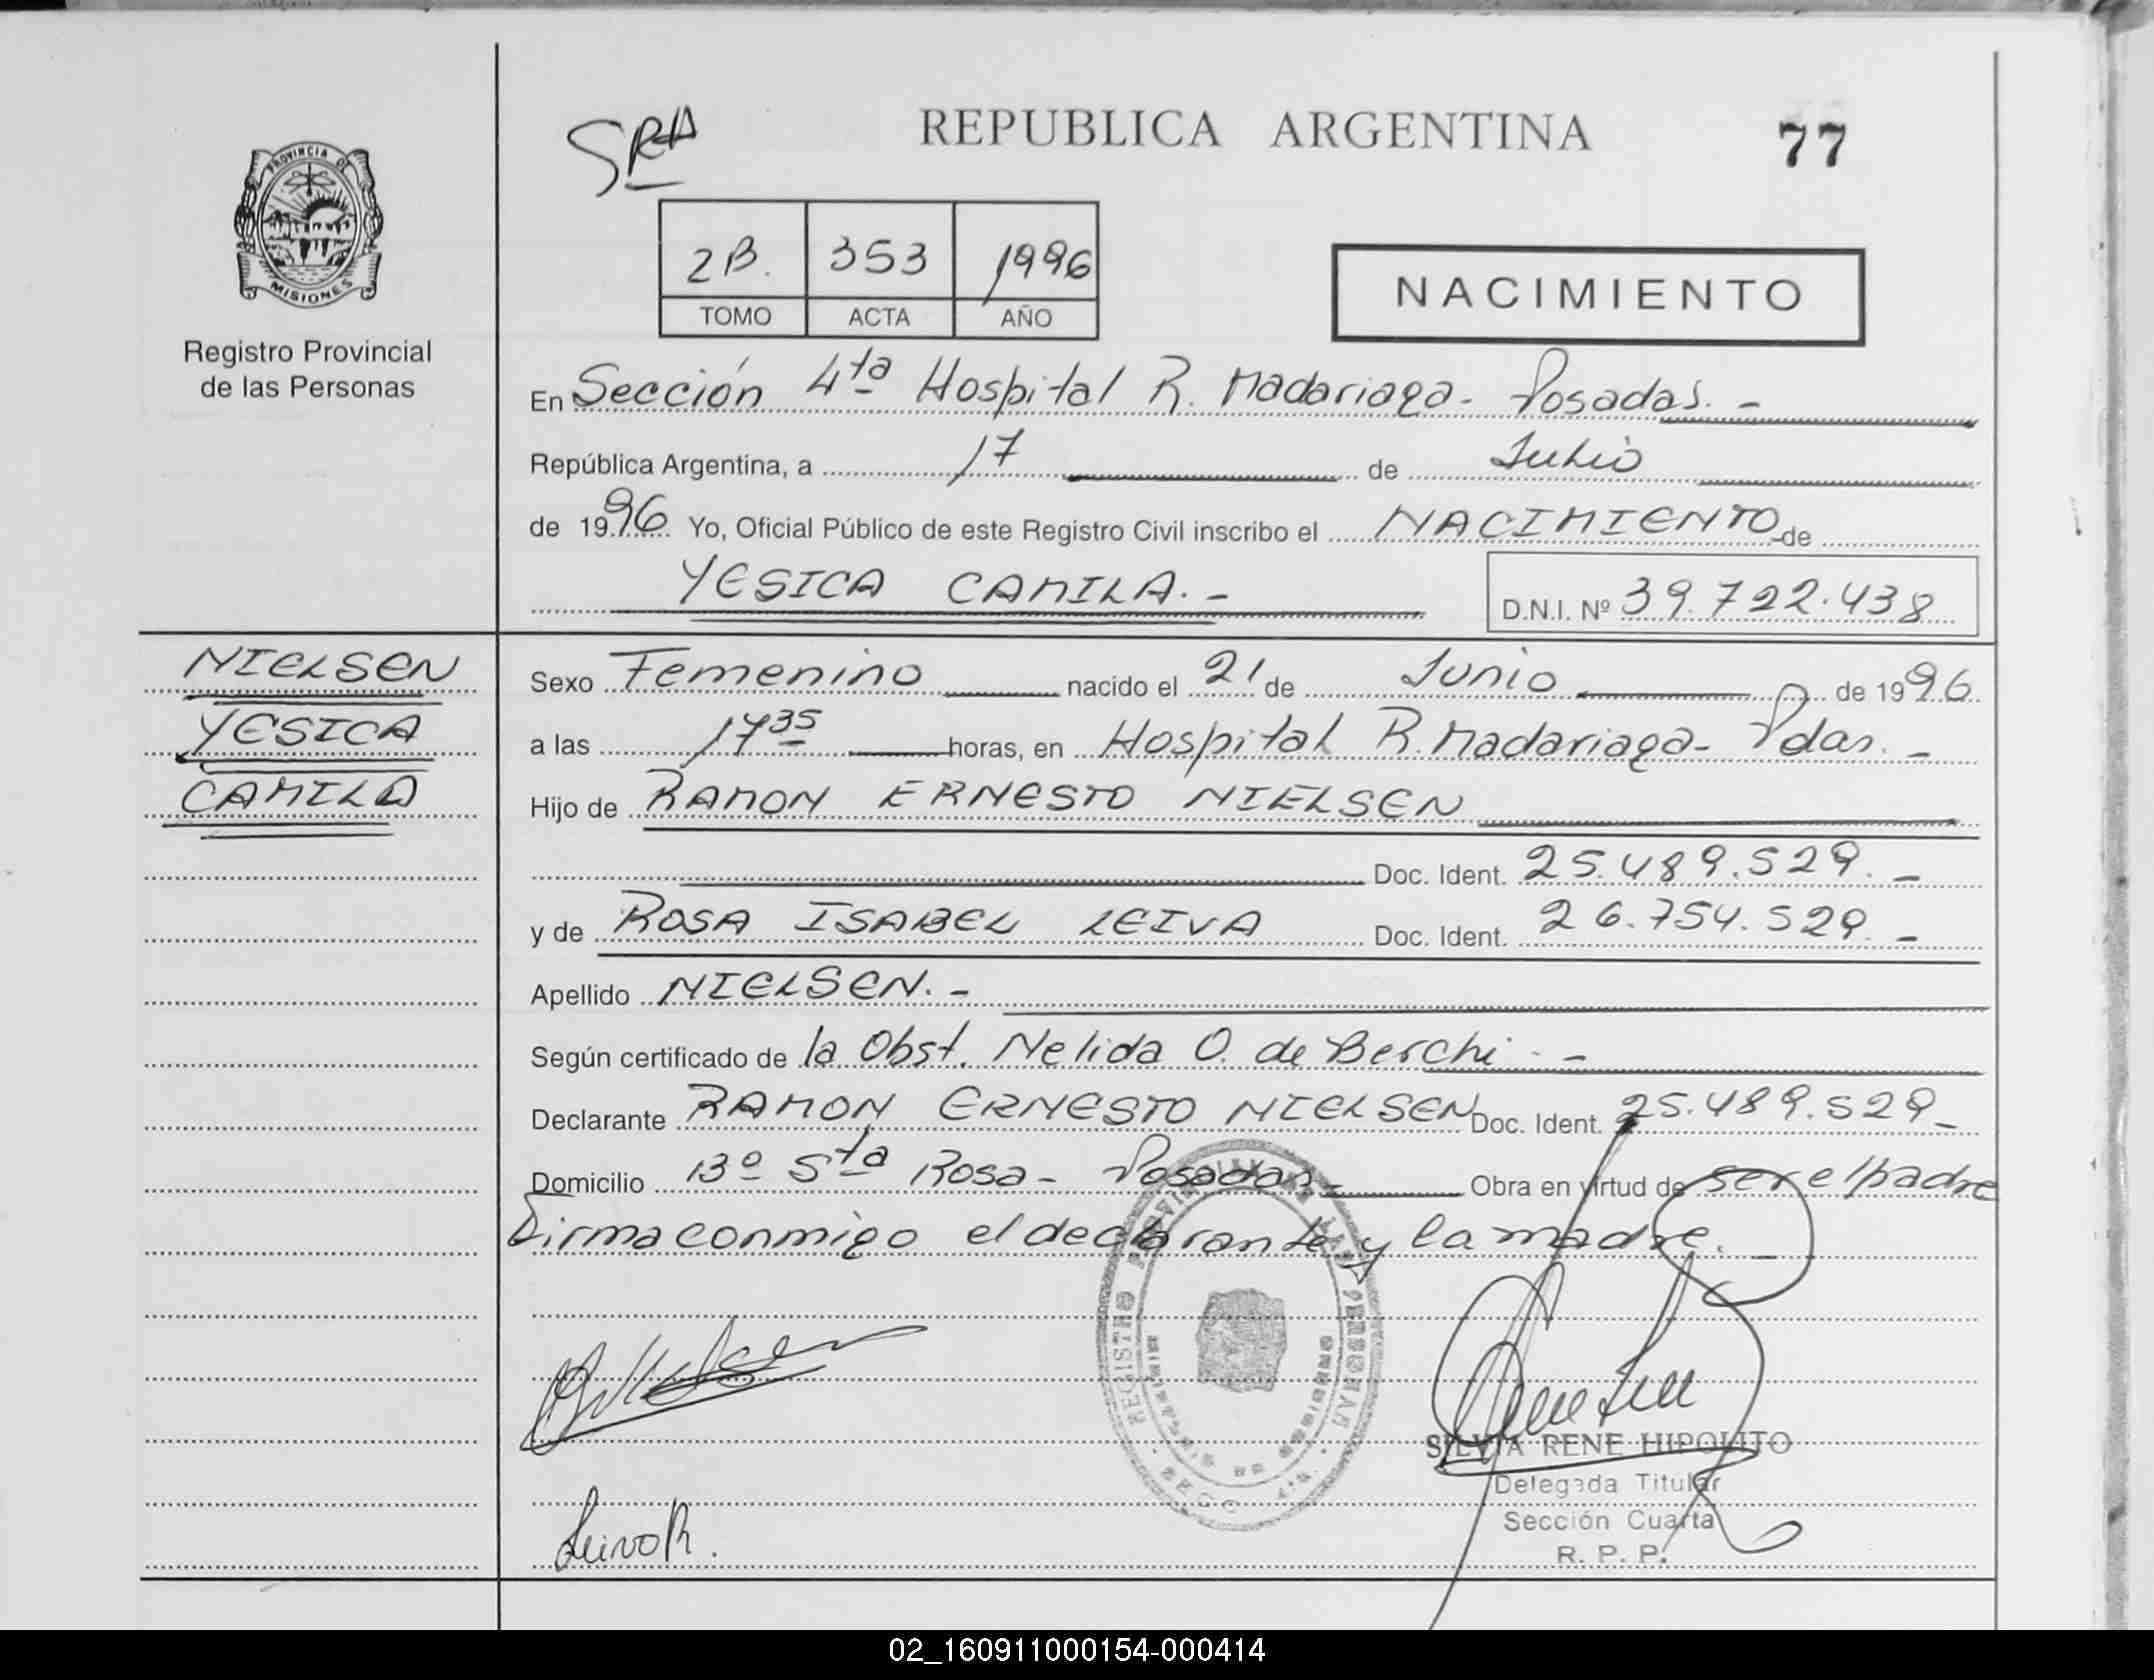 SRA
REPUBLICA ARGENTINA
77
PROVINCIA DE
MISIONES
Registro Provincial
de las Personas
2B. 353 1996
TOMO ACTA AÑO
NACIMIENTO
En Sección 4ta Hospital R. Madariaga - Posadas. -
República Argentina, a 17 de Julio
de 1996 Yo, Oficial Público de este Registro Civil inscribo el NACIMIENTO de
YESICA CAMILA. -
D.N.I. Nº 39.722.438
NIELSEN
YESICA
CAMILA
Sexo Femenino nacido el 21 de Junio de 1996
a las 17 35 horas, en Hospital R. Madariaga - Pdas. -
Hijo de RAMON ERNESTO NIELSEN
Doc. Ident. 25.489.529. -
y de ROSA ISABEL LEIVA Doc. Ident. 26.754.529. -
Apellido NIELSEN. -
Según certificado de la Obst. Nelida O. de Berchi. -
Declarante RAMON ERNESTO NIELSEN Doc. Ident. 25.489.529 -
Domicilio Bº Sta Rosa - Posadas - Obra en virtud de ser el padre
Firma conmigo el declarante y la madre. -
REGISTRO PROVINCIAL DE LAS PERSONAS
Leiva R.
SILVIA RENE HIPOLITO
Delegada Titular
Sección Cuarta
R. P. P.
02_160911000154-000414